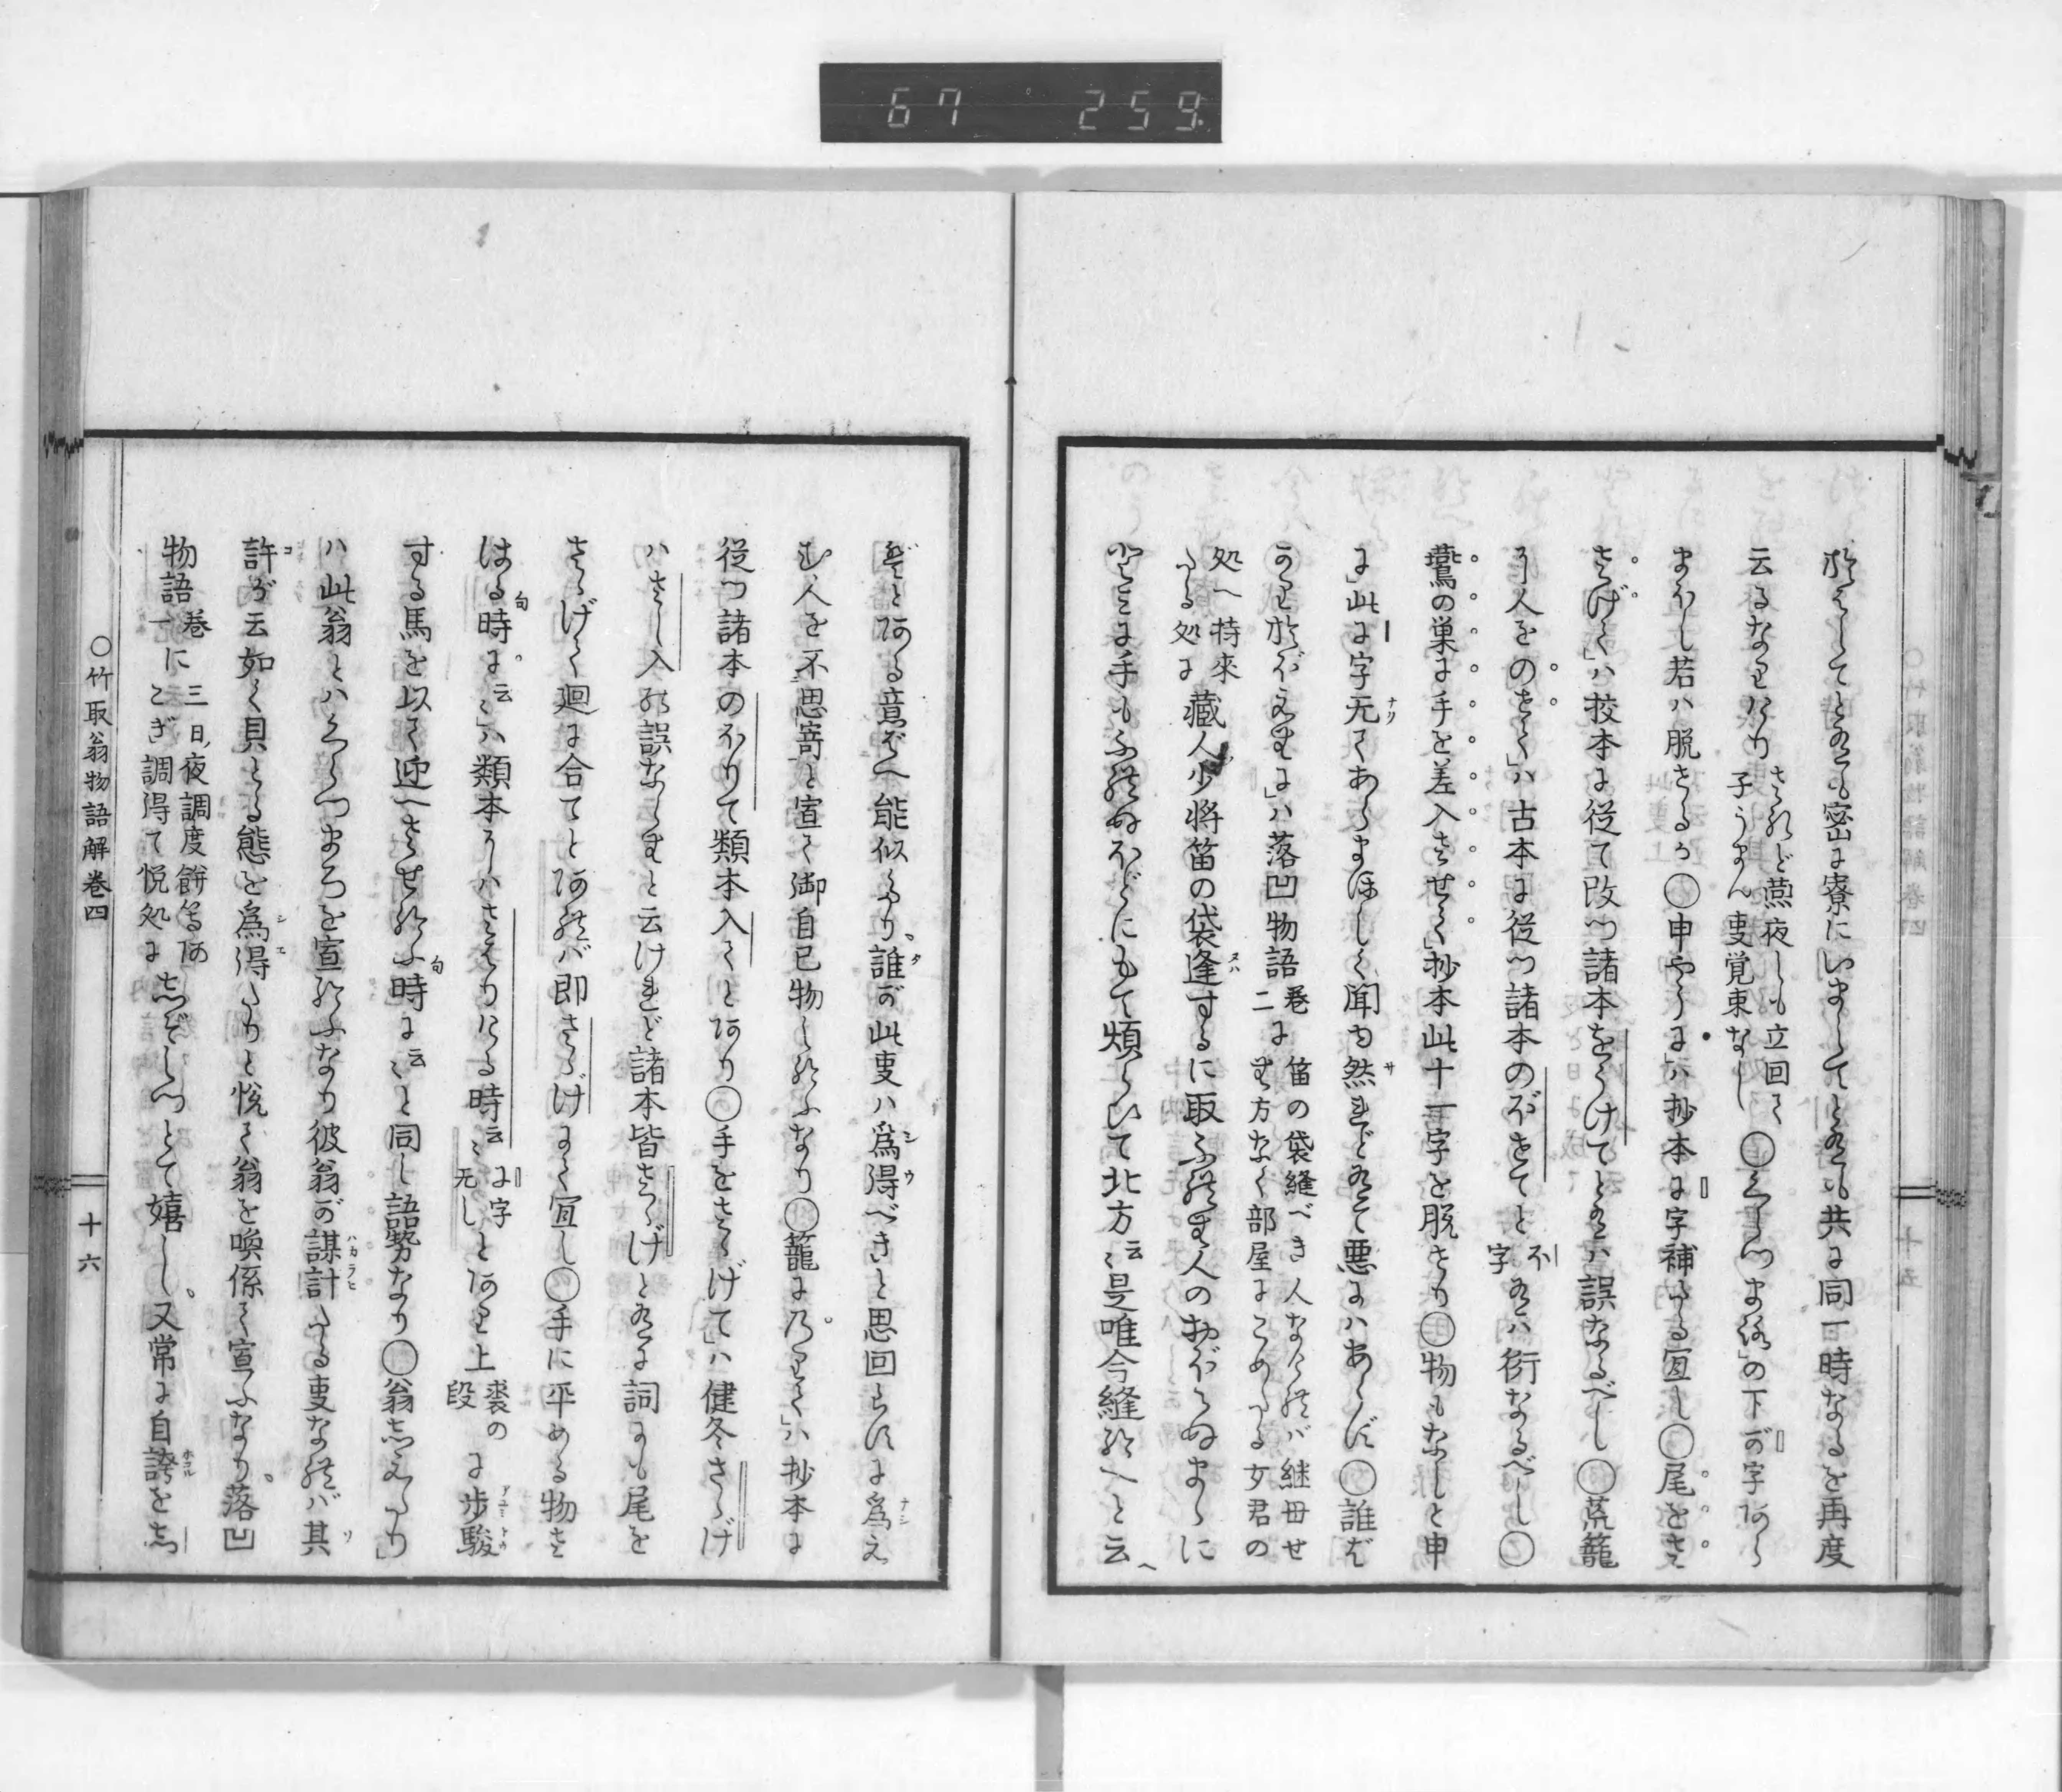 67 259
於はしてとあるも密に寮にいましてとあるも共に同一時なるを再度
云るなりけり されど燕夜しも立回て子うまん事覚束なし ○くらつまろ」の下が字あら
まほし若ハ脱さるか○申やうに」ハ抄本に字補たる宜し○尾をさ
さげて」ハ挍本に従て改つ諸本をうけてとあるハ誤なるべし○荒籠
に人をのせて」ハ古本に従つ諸本のぼせてと不字あるハ衍なるべし○
鷰の巣に手を差入させて」抄本此十一字を脱せり○物もなしと申
に」此に字无てあらまほしく聞ゆ然れどあるも悪にハあらず○誰ば
かりおぼえむに」ハ落凹物語巻二に笛の袋縫べき人なければ継母せむ方なく部屋にこめたる女君の
処へ持來たる処に藏人少将笛の袋逢するに取ふれず人のおぼえぬまゝに
北方に手もふれぬほどにもて煩らひて北方云々是唯今縫給へと云
などある意ばへ能似たり。誰が此事ハ爲得べきと思回らすに爲え
む人を不思寄と宣て御自已物し給ふなり○籠に乃りて」ハ抄本に
従つ諸本のぼりて類本入てとあり○手をさゝげて」ハ健冬さゝげ
ハさし入の誤ならむと云けれど諸本皆さゝげとある詞にも尾を
さゝげて廻に合てとあれば即さゝげにて宜し○手に平める物さ
はる時に云々」ハ類本にハさはりける時云々に字无しとあり上裘の段に歩駿
する馬を以て迎へさせ給ふ時に云々と同し語勢なり○翁しえたり」
ハ此翁とハくらつまろを宣給ふなり彼翁が謀計たる事なれば其
許が云如く貝とる態を爲得たりと悦て翁を喚係て宣ふなり。落凹
物語巻一に三日夜調度餅等あとぎ調得て悦処に志ぞしつとて嬉しし。又常に自誇を志
○竹取翁物語解巻四
十六